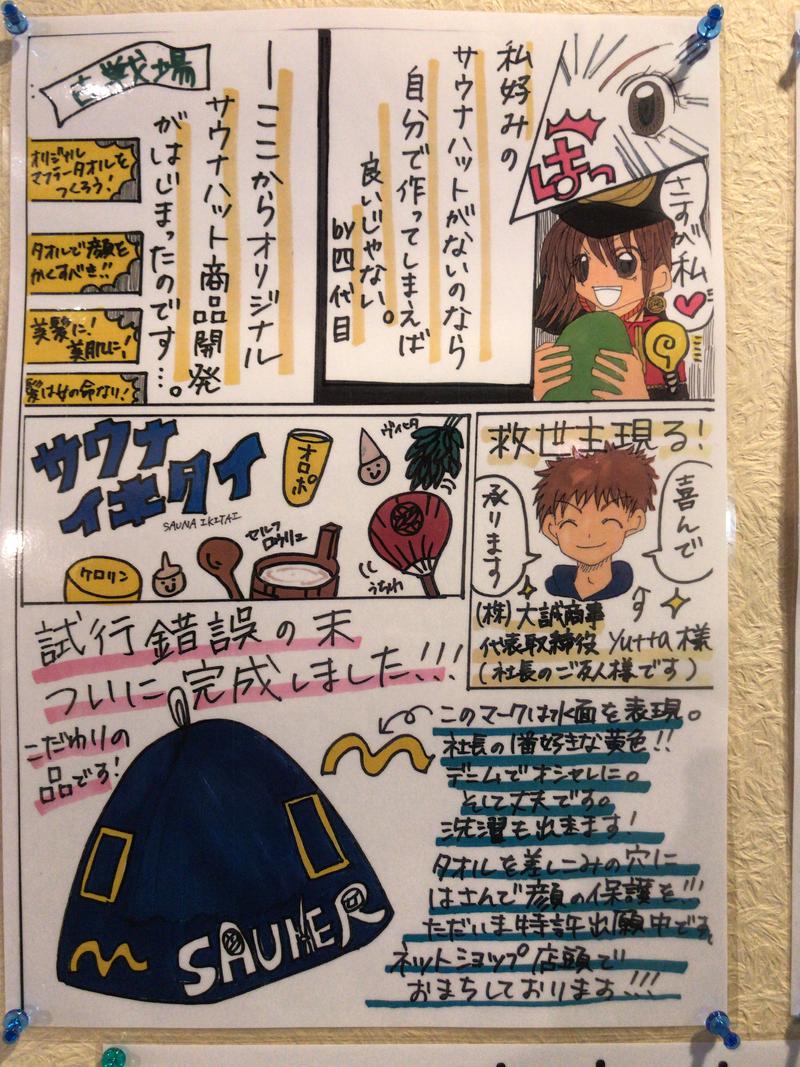 はっ
さすが私♥
私好みの
サウナハットがないのなら
自分で作ってしまえば
良いじゃない。
by四代目
ーここからオリジナル
サウナハット商品開発
がはじまったのです…。
古戦場
オリジナル
マフラータオルを
つくろう!
タオルで顔を
かくすべき!!
美髪に!
美肌に!
髪は女の命なり!
サウナ
イキタイ
SAUNA IKITAI
オロポ
ヴィヒタ
ケロリン
セルフ
ロウリュ
うちわ
救世主現る!
喜んで
承ります
(株)大誠商事
代表取締役 Yutta様
(社長のご友人様です)
試行錯誤の末
ついに完成しました!!!
こだわりの
品です!
SAUNER
このマークは水面を表現。
社長の1番好きな黄色!!
デニムでオシャレに。
そして丈夫です。
洗濯も出来ます!
タオルを差しこみの穴に
はさんで顔の保護を!!!
ただいま特許出願中です。
ネットショップ店頭で
おまちしております!!!